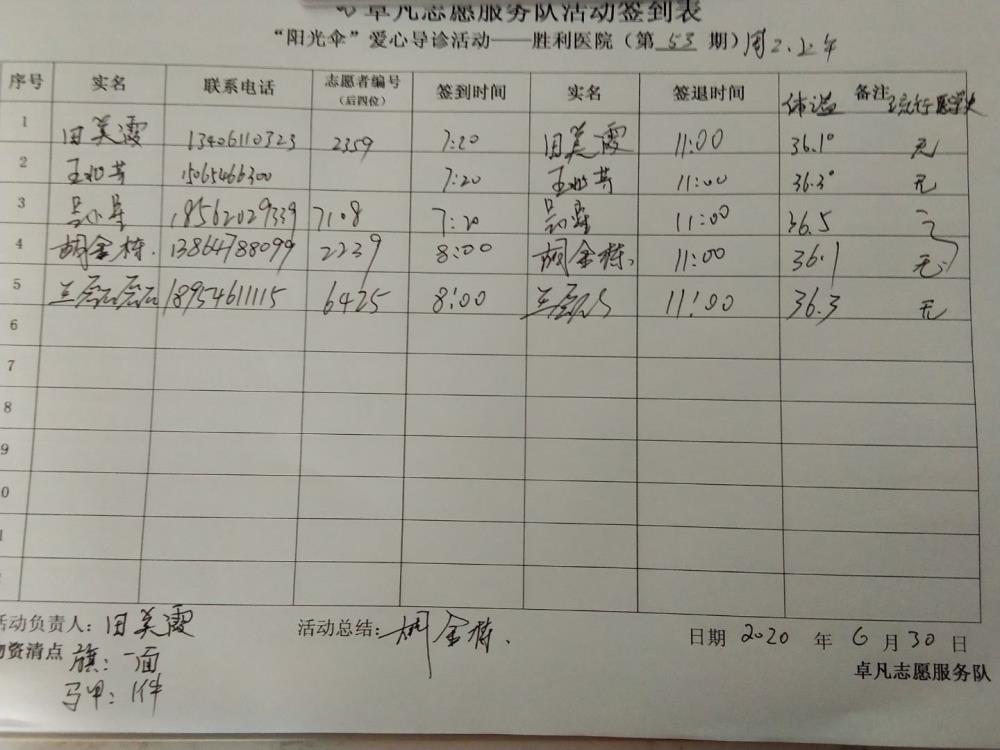 卓凡志愿服务队活动签到表
“阳光伞”爱心导诊活动——胜利医院(第 53 期)周2.上午
序号 实名 联系电话 志愿者编号(后四位) 签到时间 实名 签退时间 体温 备注 流行病学史
1 田美霞 13406110323 2359 7:20 田美霞 11:00 36.1° 无
2 王 芳 15065466300 7:20 王 芳 11:00 36.3° 无
3 18562029339 7108 7:20 11:00 36.5
4 胡金栋. 13864788099 2239 8:00 胡金栋. 11:00 36.1 无
5 兰 18954611115 6425 8:00 兰 11:00 36.3 无
6
7
8
9
0
活动负责人: 田美霞 活动总结: 胡金栋. 日期 2020 年 6 月 30 日
物资清点 旗: 一面 卓凡志愿服务队
马甲: 1件